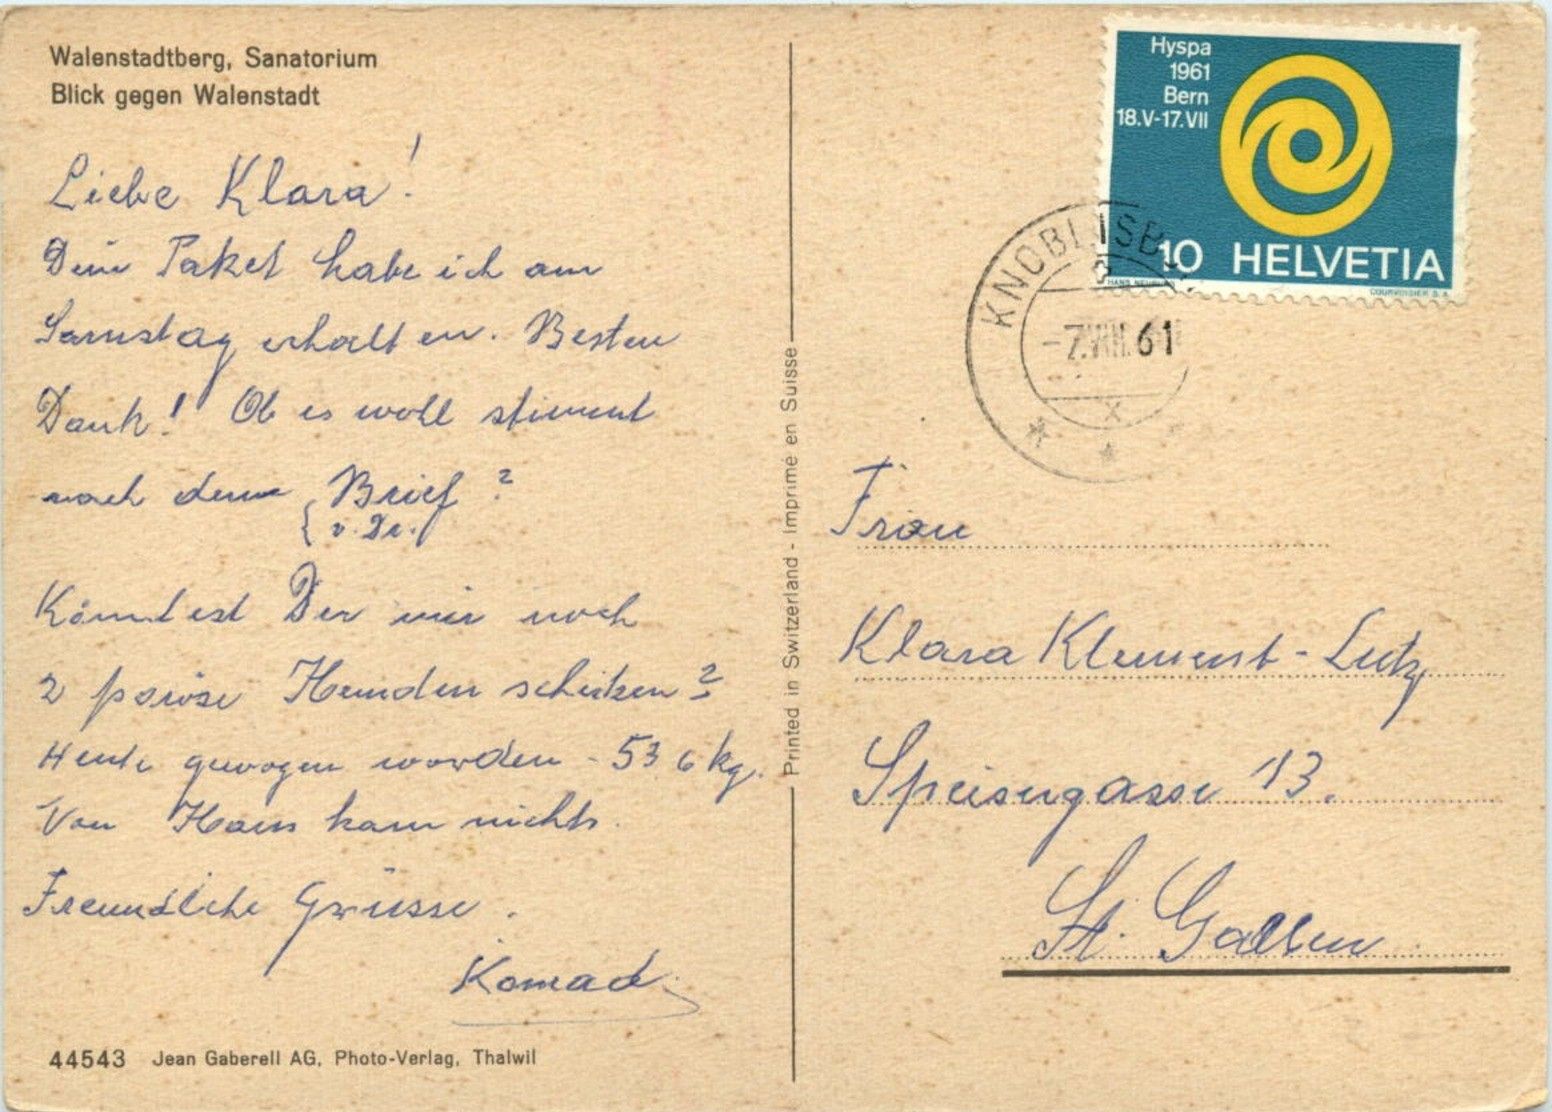 Walenstadtberg, Sanatorium
Blick gegen Walenstadt
Liebe Klara!
Dein Paket habe ich am
Samstag erhalten. Besten
Dank! Ob es wohl stimmt
nach dem Brief?
v. Dr.
Könntest Du mir noch
2 poröse Hemden schicken?
Heute gewogen worden - 53 6 kg.
Von Hans kam nichts.
Freundliche Grüsse.
Konrad
44543 Jean Gaberell AG, Photo-Verlag, Thalwil
Printed in Switzerland - Imprimé en Suisse
Hyspa
1961
Bern
18.V-17.VII
10 HELVETIA
COURVOISIER S.A.
KNOBLISB
-7.VIII.61
X
Frau
Klara Klement-Lutz
Speisergasse 13.
St. Gallen